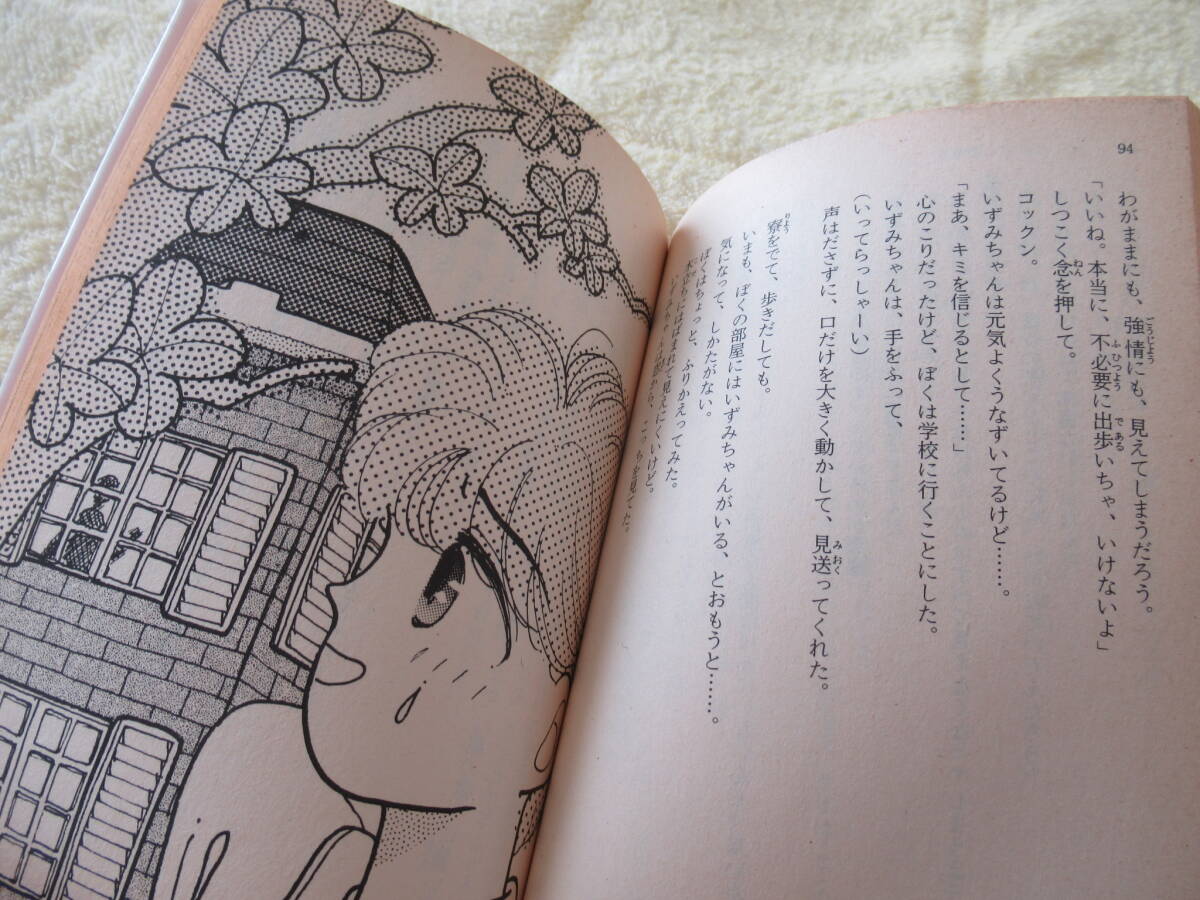 94
わがままにも、強情にも、見えてしまうだろう。
「いいね。本当に、不必要に出歩いちゃ、いけないよ」
しつこく念を押して。
コックン。
いずみちゃんは元気よくうなずいてるけど……。
「まあ、キミを信じるとして……」
心のこりだったけど、ぼくは学校に行くことにした。
いずみちゃんは、手をふって、
(いってらっしゃーい)
声はださずに、口だけを大きく動かして、見送ってくれた。
寮をでて、歩きだしても。
いまも、ぼくの部屋にはいずみちゃんがいる、とおもうと……。
気になって、しかたがない。
ぼくはちょっと、ふりかえってみた。
見にくいけど。
を見てた。